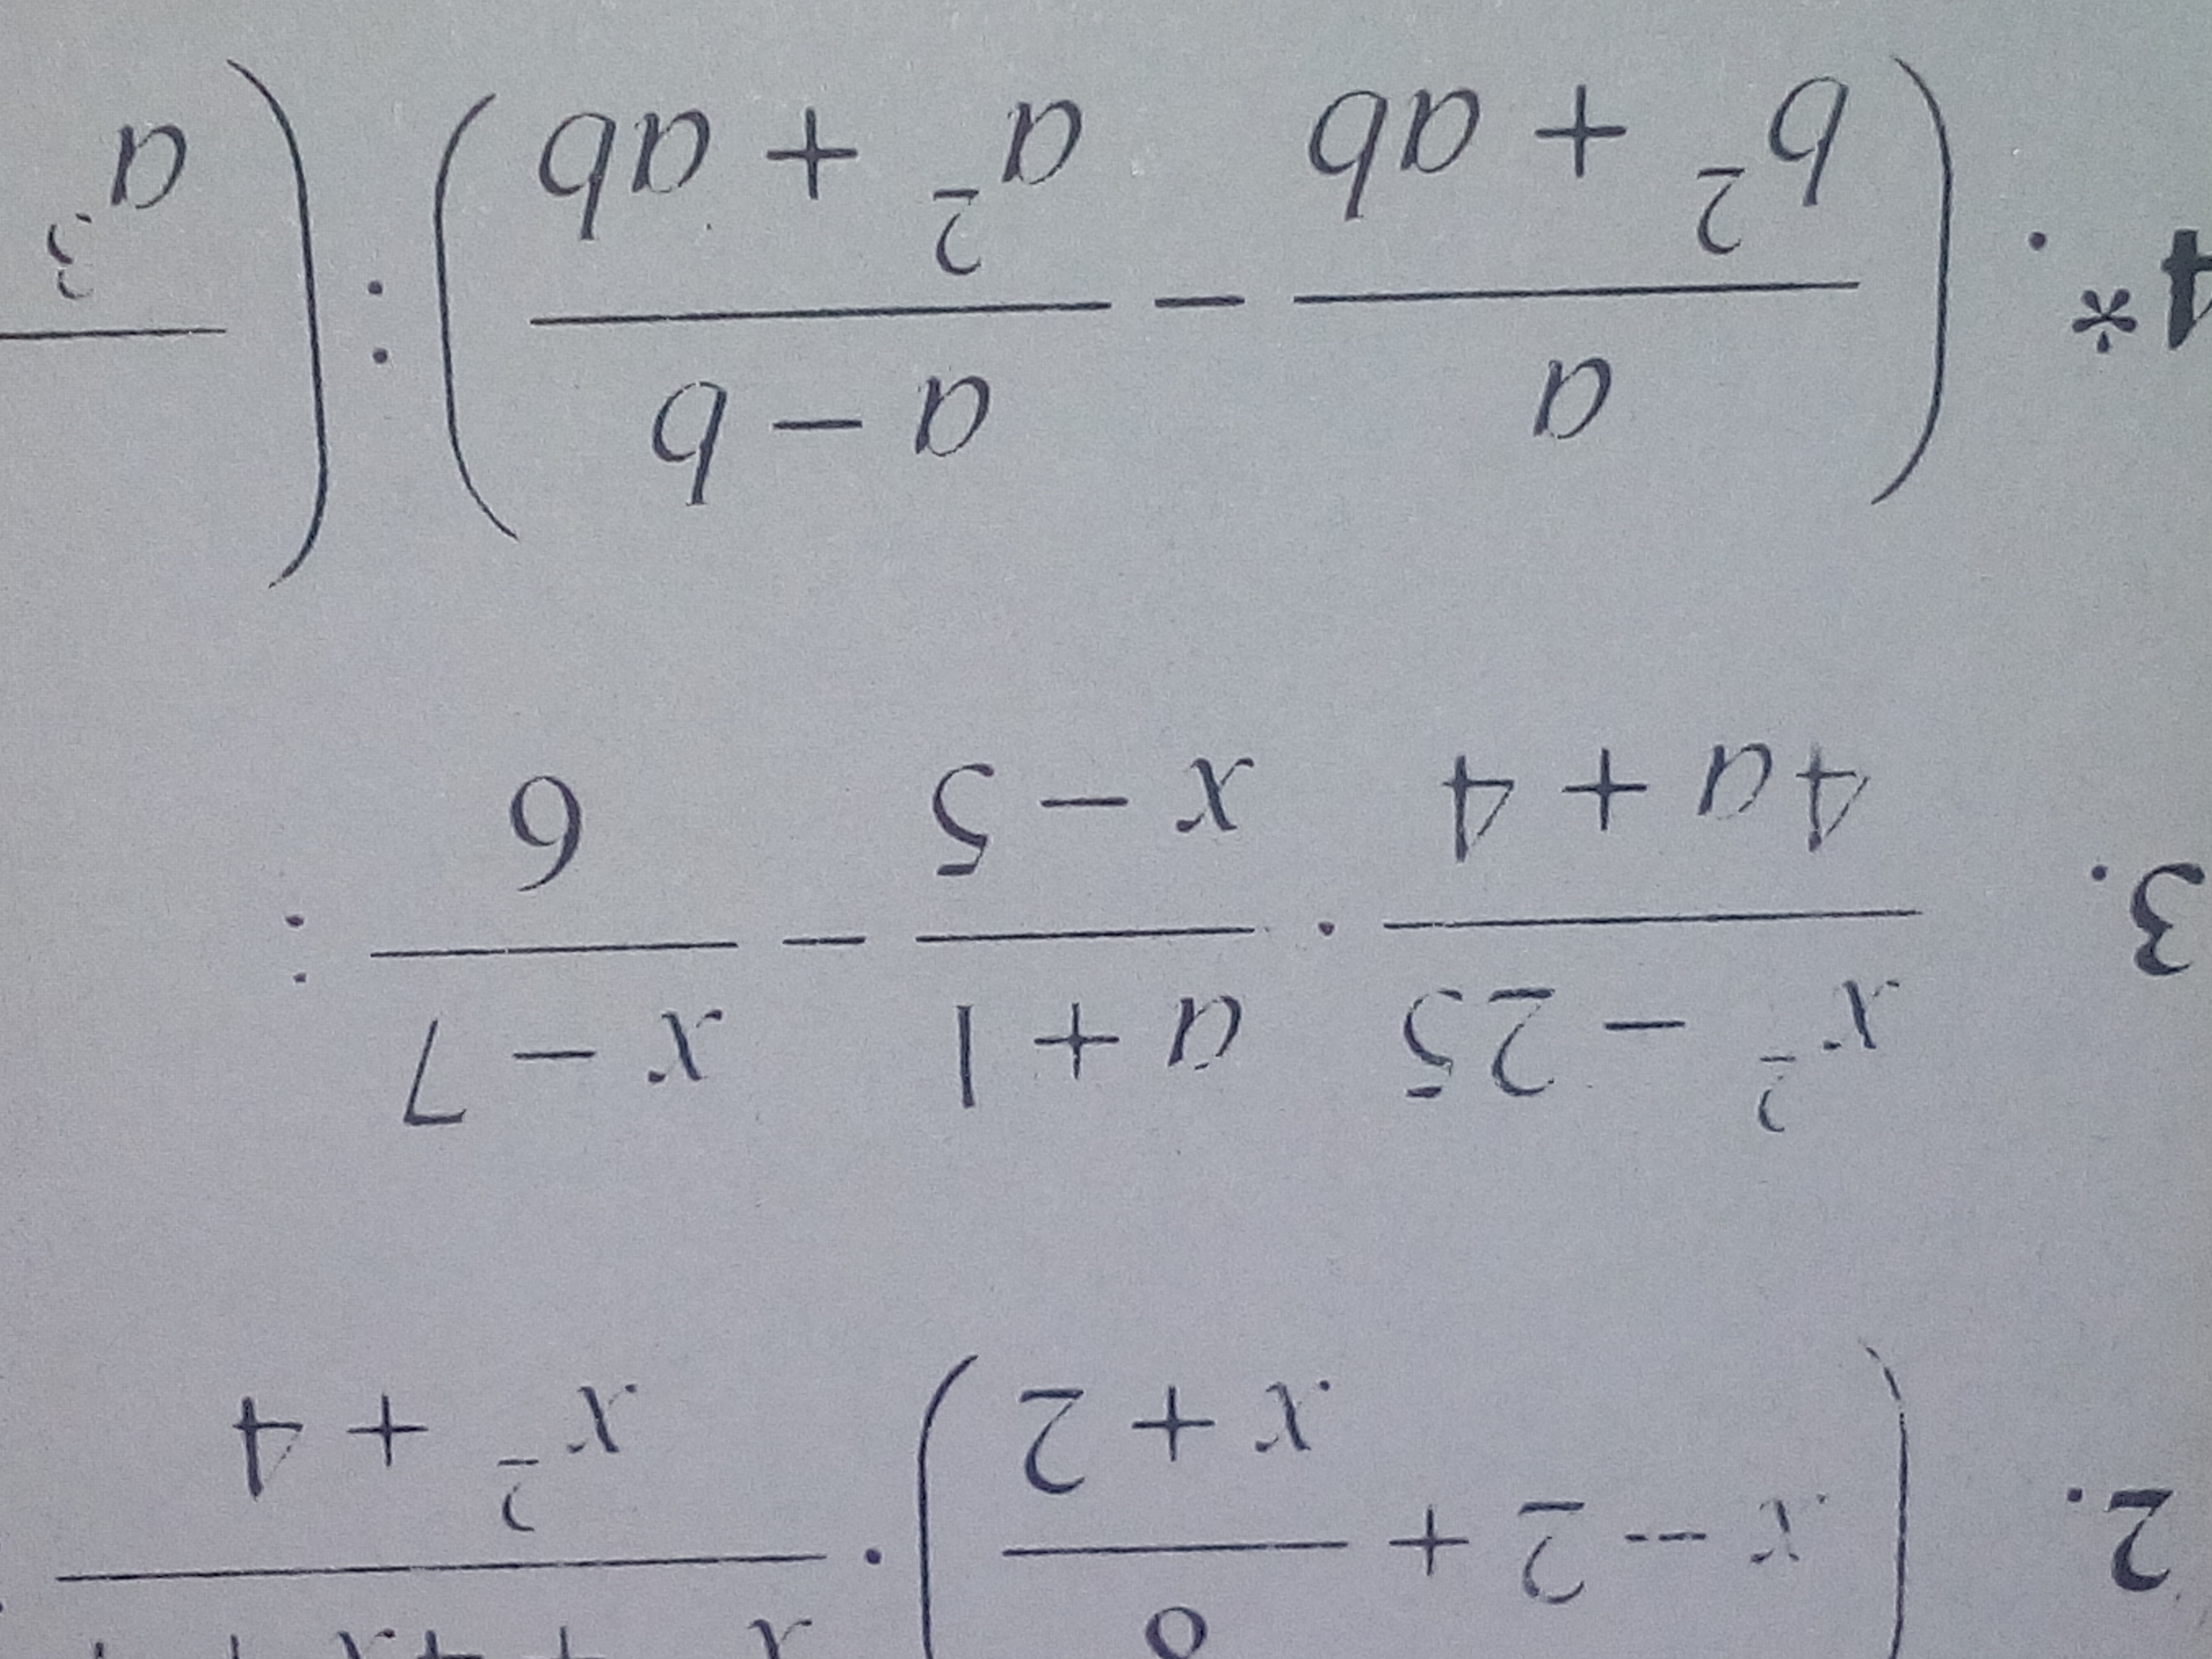 2. (x − 2 + 8/(x + 2)) · (x² + 4x + 4)/(x² + 4)
3. (x² − 25)/(4a + 4) · (a + 1)/(x − 5) − (x − 7)/6 :
4*. (a/(b² + ab) − (a − b)/(a² + ab)) : ( /a³